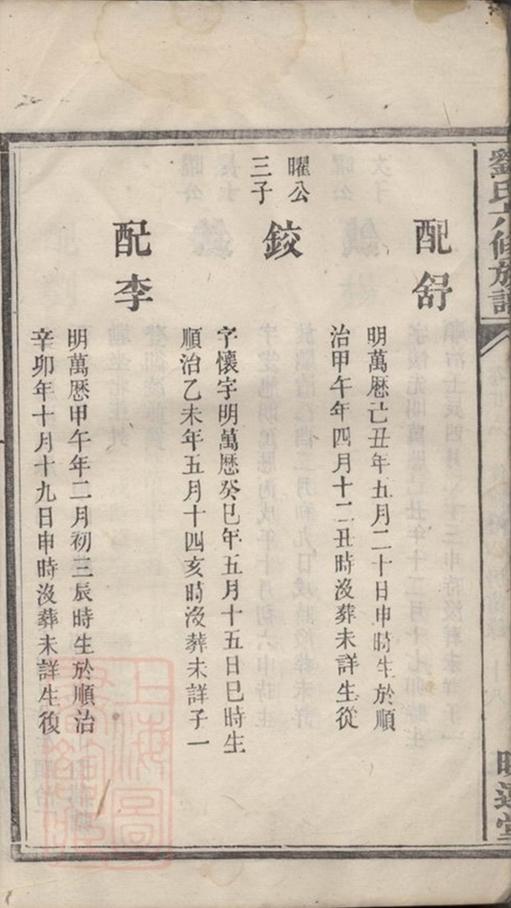 劉氏六修族譜
配舒
明萬歷己丑年五月二十日申時生於順
治甲午年四月十二丑時沒葬未詳生從
曜公
三子
鉸
字懷宇明萬歷癸巳年五月十五日巳時生
順治乙未年五月十四亥時沒葬未詳子一
配李
明萬歷甲午年二月初三辰時生於順治
辛卯年十月十九日申時沒葬未詳生復